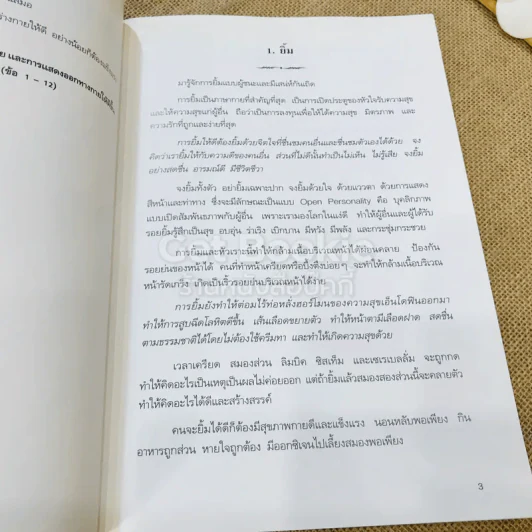 สมอ
ร่างกายให้ดี อย่างน้อยก็ต้อง
ย และการแสดงออกทางกาย
(ข้อ 1 - 12)
1. ยิ้ม
มารู้จักการยิ้มแบบผู้ชนะและมีเสน่ห์กันเถิด
การยิ้มเป็นภาษากายที่สำคัญที่สุด เป็นการเปิดประตูของหัวใจรับความสุข
และให้ความสุขแก่ผู้อื่น ถือว่าเป็นการลงทุนเพื่อให้ได้ความสุข มิตรภาพ และ
ความรักที่ถูกและง่ายที่สุด
การยิ้มให้ดีต้องยิ้มด้วยจิตใจที่ชื่นชมคนอื่นและชื่นชมตัวเองได้ด้วย จง
คิดว่าเรายิ้มให้กับความดีของคนอื่น ส่วนที่ไม่ดีนั้นทำเป็นไม่เห็น ไม่รู้เสีย จงยิ้ม
อย่างสดชื่น อารมณ์ดี มีชีวิตชีวา
จงยิ้มทั้งตัว อย่ายิ้มเฉพาะปาก จงยิ้มด้วยใจ ด้วยแววตา ด้วยการแสดง
สีหน้าและท่าทาง ซึ่งจะมีลักษณะเป็นแบบ Open Personality คือ บุคลิกภาพ
แบบเปิดสัมพันธภาพกับผู้อื่น เพราะเรามองโลกในแง่ดี ทำให้ผู้อื่นและผู้ได้รับ
รอยยิ้มรู้สึกเป็นสุข อบอุ่น ร่าเริง เบิกบาน มีหวัง มีพลัง และกระชุ่มกระชวย
การยิ้มและหัวเราะนี้ทำให้กล้ามเนื้อบริเวณหน้าได้หย่อนคลาย ป้องกัน
รอยย่นของหน้าได้ คนที่ทำหน้าเครียดหรือบึ้งตึงบ่อยๆ จะทำให้กล้ามเนื้อบริเวณ
หน้ารัดเกร็ง เกิดเป็นริ้วรอยย่นบริเวณหน้าได้ง่าย
การยิ้มยังทำให้ต่อมไร้ท่อหลั่งฮอร์โมนของความสุขเอ็นโดฟินออกมา
ทำให้การสูบฉีดโลหิตดีขึ้น เส้นเลือดขยายตัว ทำให้หน้าตามีเลือดฝาด สดชื่น
ตามธรรมชาติได้โดยไม่ต้องใช้ครีมทา และทำให้เกิดความสุขด้วย
เวลาเครียด สมองส่วน ลิมบิค ซิสเท็ม และเซเรเบลลั่ม จะถูกกด
ทำให้คิดอะไรเป็นเหตุเป็นผลไม่ค่อยออก แต่ถ้ายิ้มแล้วสมองสองส่วนนี้จะคลายตัว
ทำให้คิดอะไรได้ดีและสร้างสรรค์
คนจะยิ้มได้ดีก็ต้องมีสุขภาพกายดีและแข็งแรง นอนหลับพอเพียง กิน
อาหารถูกส่วน หายใจถูกต้อง มีออกซิเจนไปเลี้ยงสมองพอเพียง
3